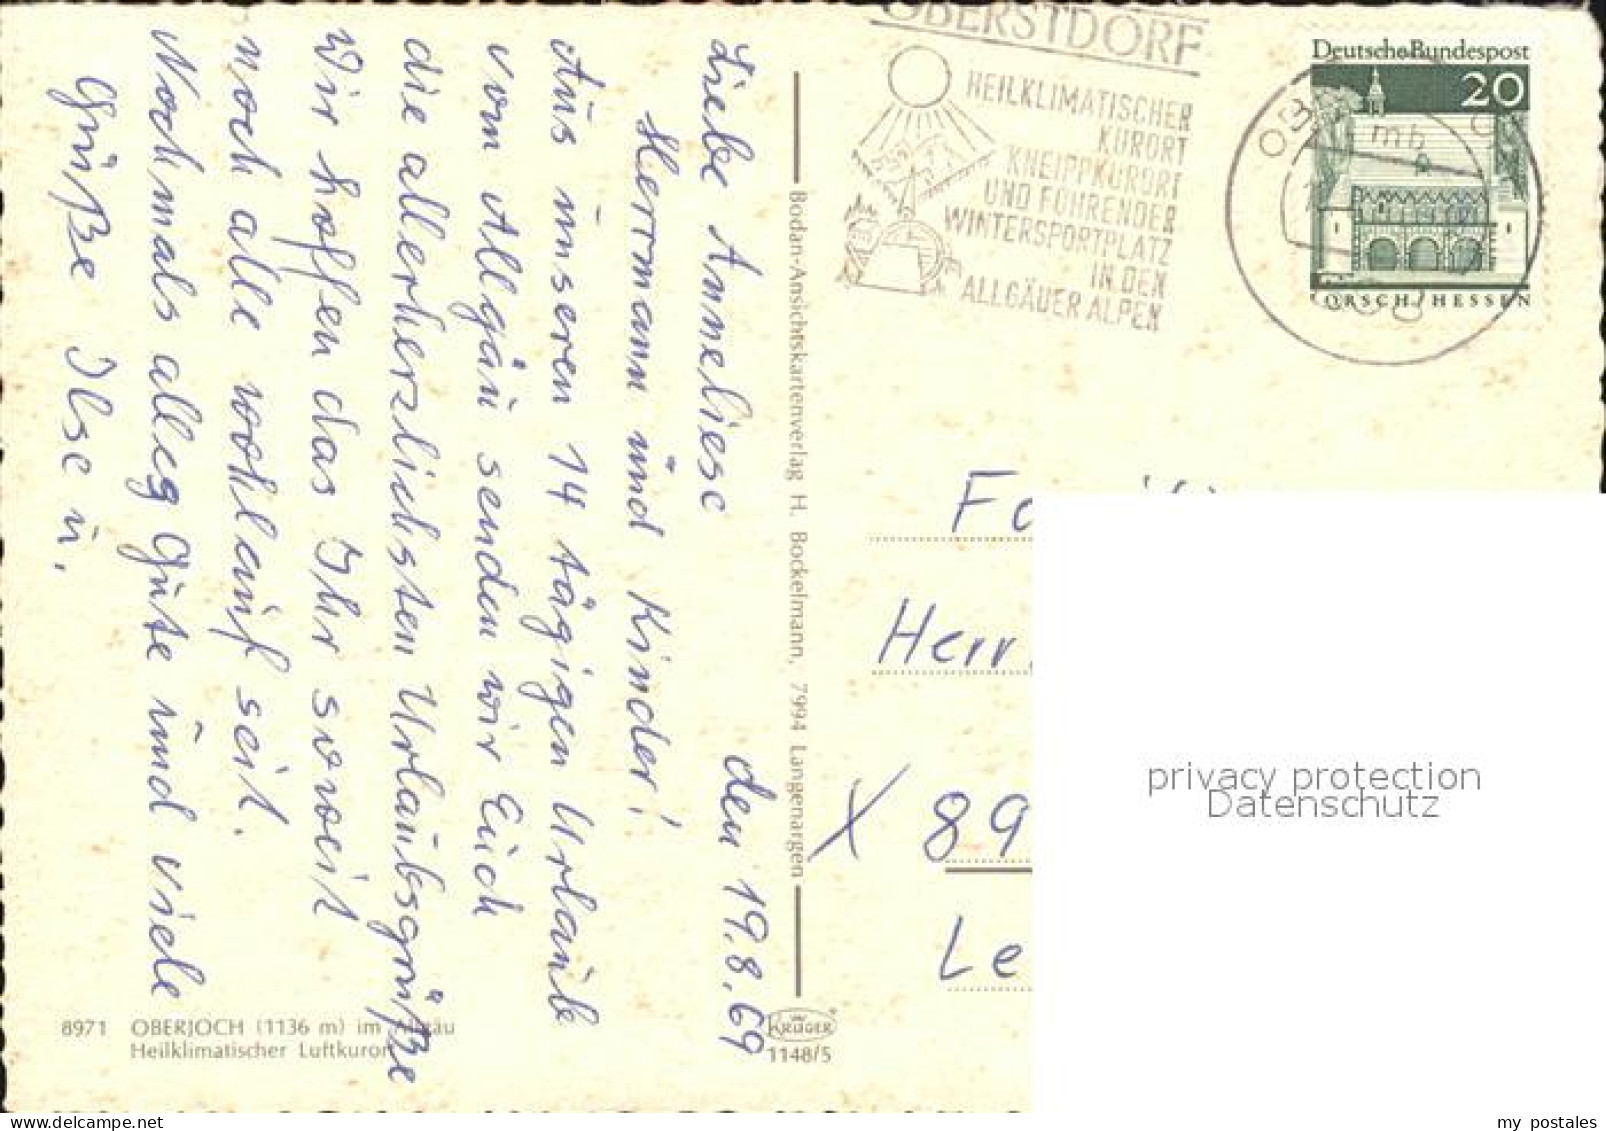 den 19.8.69
Liebe Anneliese
Herrmann und Kinder!
Aus unseren 14 tägigen Urlaub
vom Allgäu senden wir Euch
die allerherzlichsten Urlaubsgrüße
Wir hoffen das Ihr soweit
noch alle wohlauf seit.
Nochmals alles Gute und viele
Grüße Ilse u.
8971 OBERJOCH (1136 m) im Allgäu
Heilklimatischer Luftkurort
Bodan-Ansichtskartenverlag H. Bockelmann, 7994 Langenargen
KRÜGER
1148/5
OBERSTDORF
HEILKLIMATISCHER
KURORT
KNEIPPKURORT
UND FÜHRENDER
WINTERSPORTPLATZ
IN DEN
ALLGÄUER ALPEN
Deutsche Bundespost
20
mb
LORSCH / HESSEN
Herr
X 89
Le
privacy protection
Datenschutz
my postales